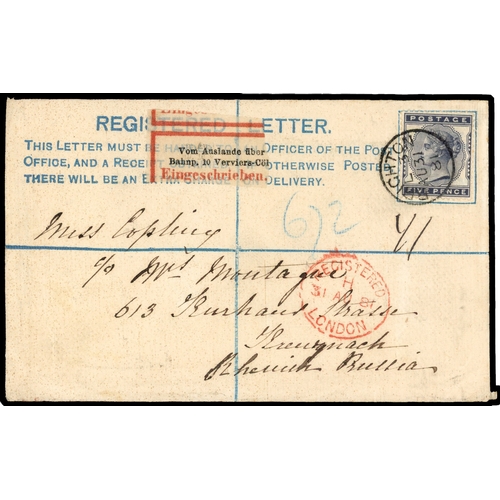 REGISTERED LETTER.
THIS LETTER MUST BE OFFICER OF THE POST
OFFICE, AND A RECEIPT OTHERWISE POSTED
THERE WILL BE AN EXTRA CHARGE DELIVERY.
Vom Auslande über
Bahnp. 10 Verviers-Cöl
Eingeschrieben.
POSTAGE
FIVE PENCE
672
Miss Copling
c/o Mrs Montague
613 Kurhaus Strasse
Kreuznach
Rhenish Prussia
REGISTERED
H
31 81
LONDON